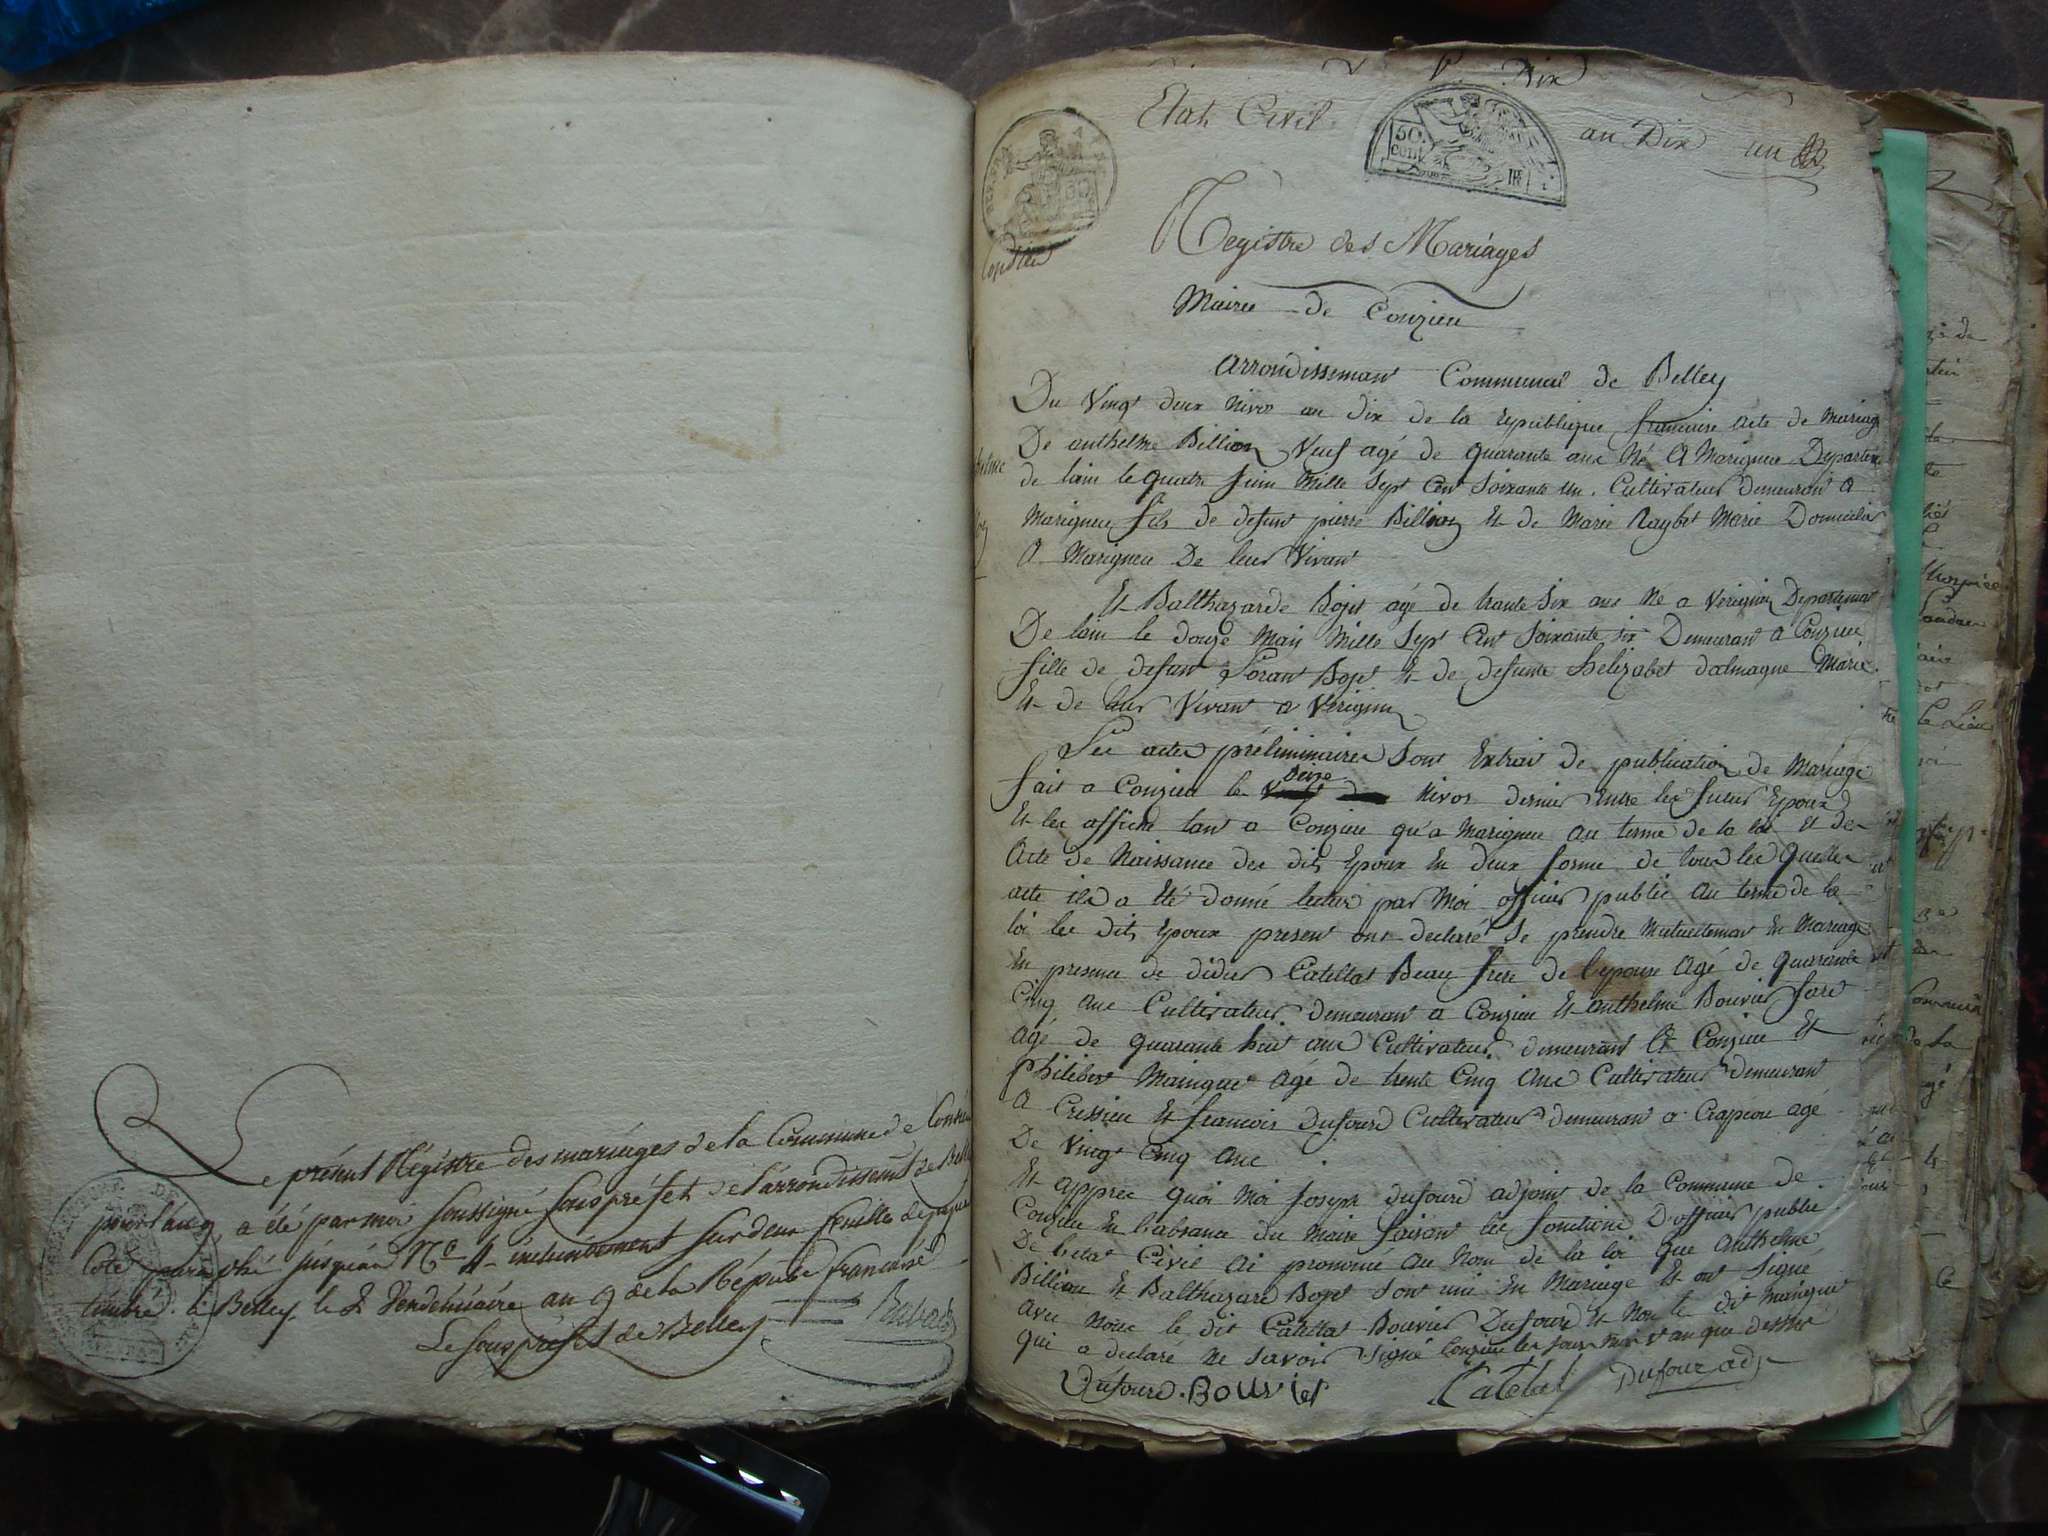 Le présent Régistre des mariages de la Commune de Conzieu
pour l'an 9, a été par moi soussigné sous préfet de l'arrondissemt de Belley
Coté paraphé jusqu'au No 4 inclusivement sur deux feuilles de papier
timbré. à Belley, le 2 Vendémiaire an 9 de la Répub. francaise
Le sous préfet de Belley
Dix
Etat Civil
50 cent
an Dix un
Conzieu
Registre des Mariages
Mairee de Conzieu
Arrondissemant Communal de Belley
Du Vingt deux Nivos an dix de la republique francaise acte de Mariage
De anthelme Billion Veuf agé de quarante ans Né A Marignieu Departem
de lain le quatre juin Mille Sept Cent Soixante un. Cultivateur demeurant A
Marignieu fils de defunt pierre Billion Et de Marie Raybet Marie Domicilié
A Marignieu De leur Vivant
Et Balthazarde Bojet agé de trante Six ans Né a Virignin Departemant
De lain le douze May Mille Sept Cent Soixante six Demeurant A Conzieu
fille de defunt Bojet Et de defunte helizabet dalmaque Marié
Et de leur Vivant a Virignin
Les actes préliminaires Sont Extrait de publication de Mariage
fait a Conzieu le Nivos dernier Entre les futur Epoux
Et les affiche tant a Conzieu qu'a Marignieu au terme de la loi Et de
Acte de Naissance des dits Epoux En deux forme de tous les quelles
acte il a Eté donné lecture par Moi officier public au terme de la
loi les dits Epoux present ont declaré Se prendre Mutuellemant En Mariage
En presence de didier Catellat Beau frere de lepouse Agé de quarante
Cinq ans Cultivateur demeurant a Conzieu Et anthelme Bouvier
Agé de quarante huit ans Cultivateur demeurant A Conzieu Et
philibert Mainguet Age de trente Cinq Ans Cultivateur demeurant
A Cressieu Et francois dufourd Cultivateur demeurant a Crapeou agé
De Vingt Cinq ans
Et appres quoi Moi joseph dufourd adjoint de la Commune de
Conzieu En labsance du Maire faisant les fonctions D'officier public
De letat Civil Ai prononcé Au Nom de la loi que Anthelme
Billion Et Balthazard Bojet Sont uni En Mariage Et ont Signé
Avec Nous le dit Catellat Bouvier Dufourd Et Non le dit Mainguet
qui a declaré Ne Savoir Signé Conzieu les jour Mois Et an que dessus
Dufourd. Bouvier Catelat Dufour adj